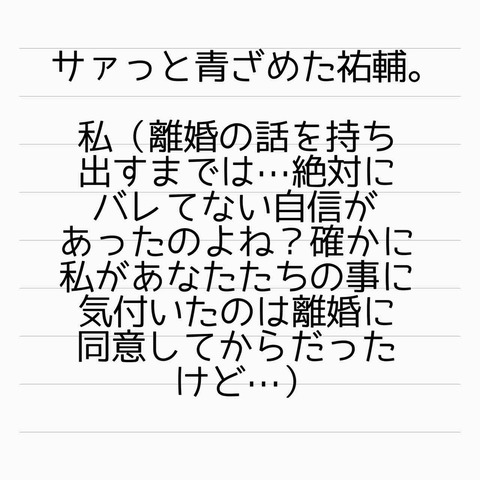 サァっと青ざめた祐輔。
私（離婚の話を持ち
出すまでは…絶対に
バレてない自信が
あったのよね？確かに
私があなたたちの事に
気付いたのは離婚に
同意してからだった
けど…）